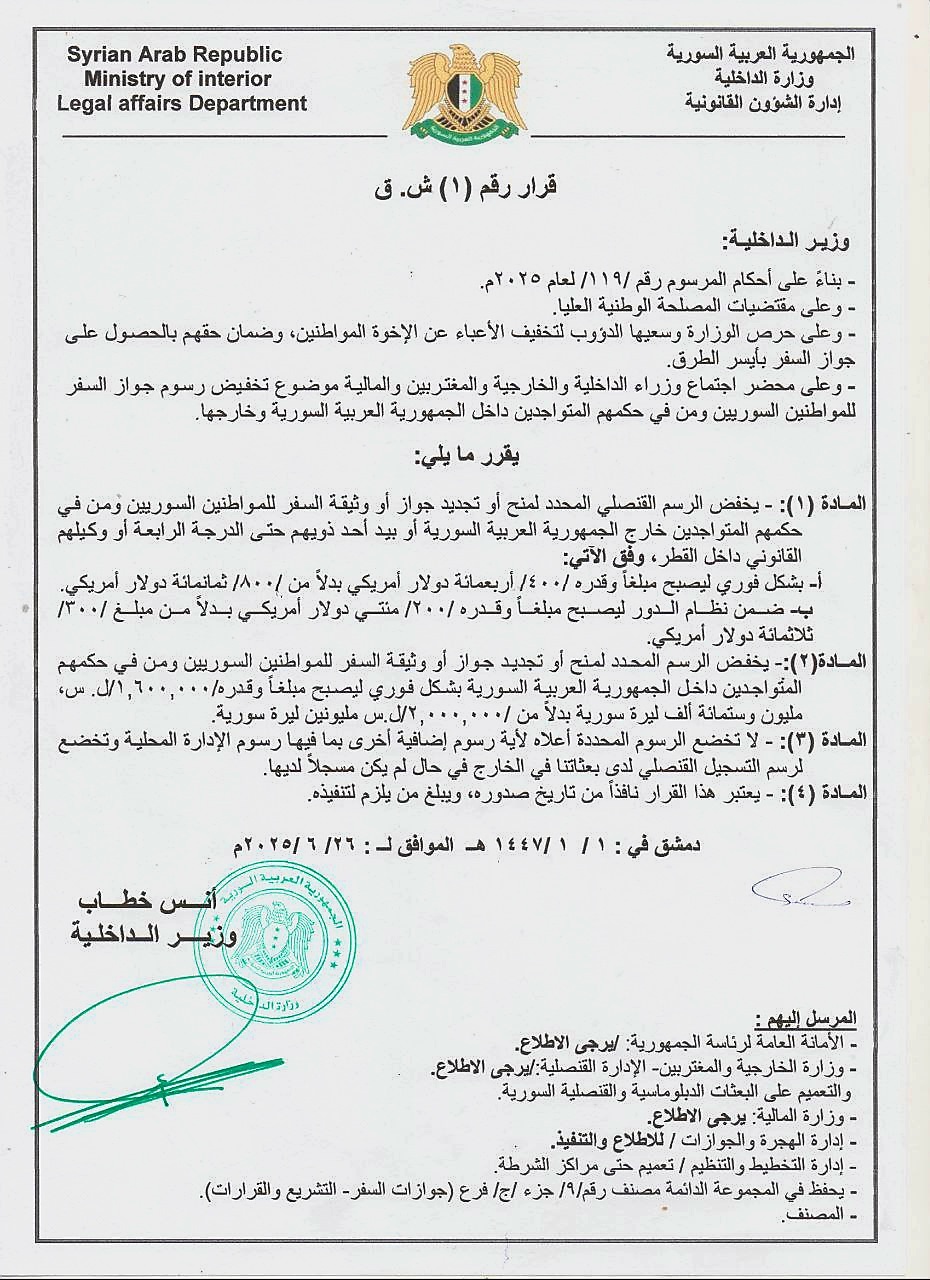 Syrian Arab Republic
Ministry of interior
Legal affairs Department
الجمهورية العربية السورية
وزارة الداخلية
إدارة الشؤون القانونية
الجمهورية العربية السورية
قرار رقم (١) ش. ق
وزير الداخلية:
- بناءً على أحكام المرسوم رقم /١١٩/ لعام ٢٠٢٥م.
- وعلى مقتضيات المصلحة الوطنية العليا.
- وعلى حرص الوزارة وسعيها الدؤوب لتخفيف الأعباء عن الإخوة المواطنين، وضمان حقهم بالحصول على
جواز السفر بأيسر الطرق.
- وعلى محضر اجتماع وزراء الداخلية والخارجية والمغتربين والمالية موضوع تخفيض رسوم جواز السفر
للمواطنين السوريين ومن في حكمهم المتواجدين داخل الجمهورية العربية السورية وخارجها.
يقرر ما يلي:
المادة (١): - يخفض الرسم القنصلي المحدد لمنح أو تجديد جواز أو وثيقة السفر للمواطنين السوريين ومن في
حكمهم المتواجدين خارج الجمهورية العربية السورية أو بيد أحد ذويهم حتى الدرجة الرابعة أو وكيلهم
القانوني داخل القطر، وفق الآتي:
أ- بشكل فوري ليصبح مبلغاً وقدره /٤٠٠/ أربعمائة دولار أمريكي بدلاً من /٨٠٠/ ثمانمائة دولار أمريكي.
ب- ضمن نظام الدور ليصبح مبلغاً وقدره /٢٠٠/ مئتي دولار أمريكي بدلاً من مبلغ /٣٠٠/
ثلاثمائة دولار أمريكي.
المادة(٢):- يخفض الرسم المحدد لمنح أو تجديد جواز أو وثيقة السفر للمواطنين السوريين ومن في حكمهم
المتواجدين داخل الجمهورية العربية السورية بشكل فوري ليصبح مبلغاً وقدره/١,٦٠٠,٠٠٠/ل. س،
مليون وستمائة ألف ليرة سورية بدلاً من /٢,٠٠٠,٠٠٠/ل.س مليونين ليرة سورية.
المادة (٣): - لا تخضع الرسوم المحددة أعلاه لأية رسوم إضافية أخرى بما فيها رسوم الإدارة المحلية وتخضع
لرسم التسجيل القنصلي لدى بعثاتنا في الخارج في حال لم يكن مسجلاً لديها.
المادة (٤): - يعتبر هذا القرار نافذاً من تاريخ صدوره، ويبلغ من يلزم لتنفيذه.
دمشق في : ١/ ١/ ١٤٤٧ هـ الموافق لـ : ٢٦/ ٦/ ٢٠٢٥م
أنس خطاب
وزير الداخلية
الجمهورية العربية السورية
وزارة الداخلية
المرسل إليهم :
- الأمانة العامة لرئاسة الجمهورية: /يرجى الاطلاع.
- وزارة الخارجية والمغتربين- الإدارة القنصلية:/يرجى الاطلاع.
والتعميم على البعثات الدبلوماسية والقنصلية السورية.
- وزارة المالية: يرجى الاطلاع.
- إدارة الهجرة والجوازات / للاطلاع والتنفيذ.
- إدارة التخطيط والتنظيم / تعميم حتى مراكز الشرطة.
- يحفظ في المجموعة الدائمة مصنف رقم/٩/ جزء /ج/ فرع (جوازات السفر- التشريع والقرارات).
- المصنف.